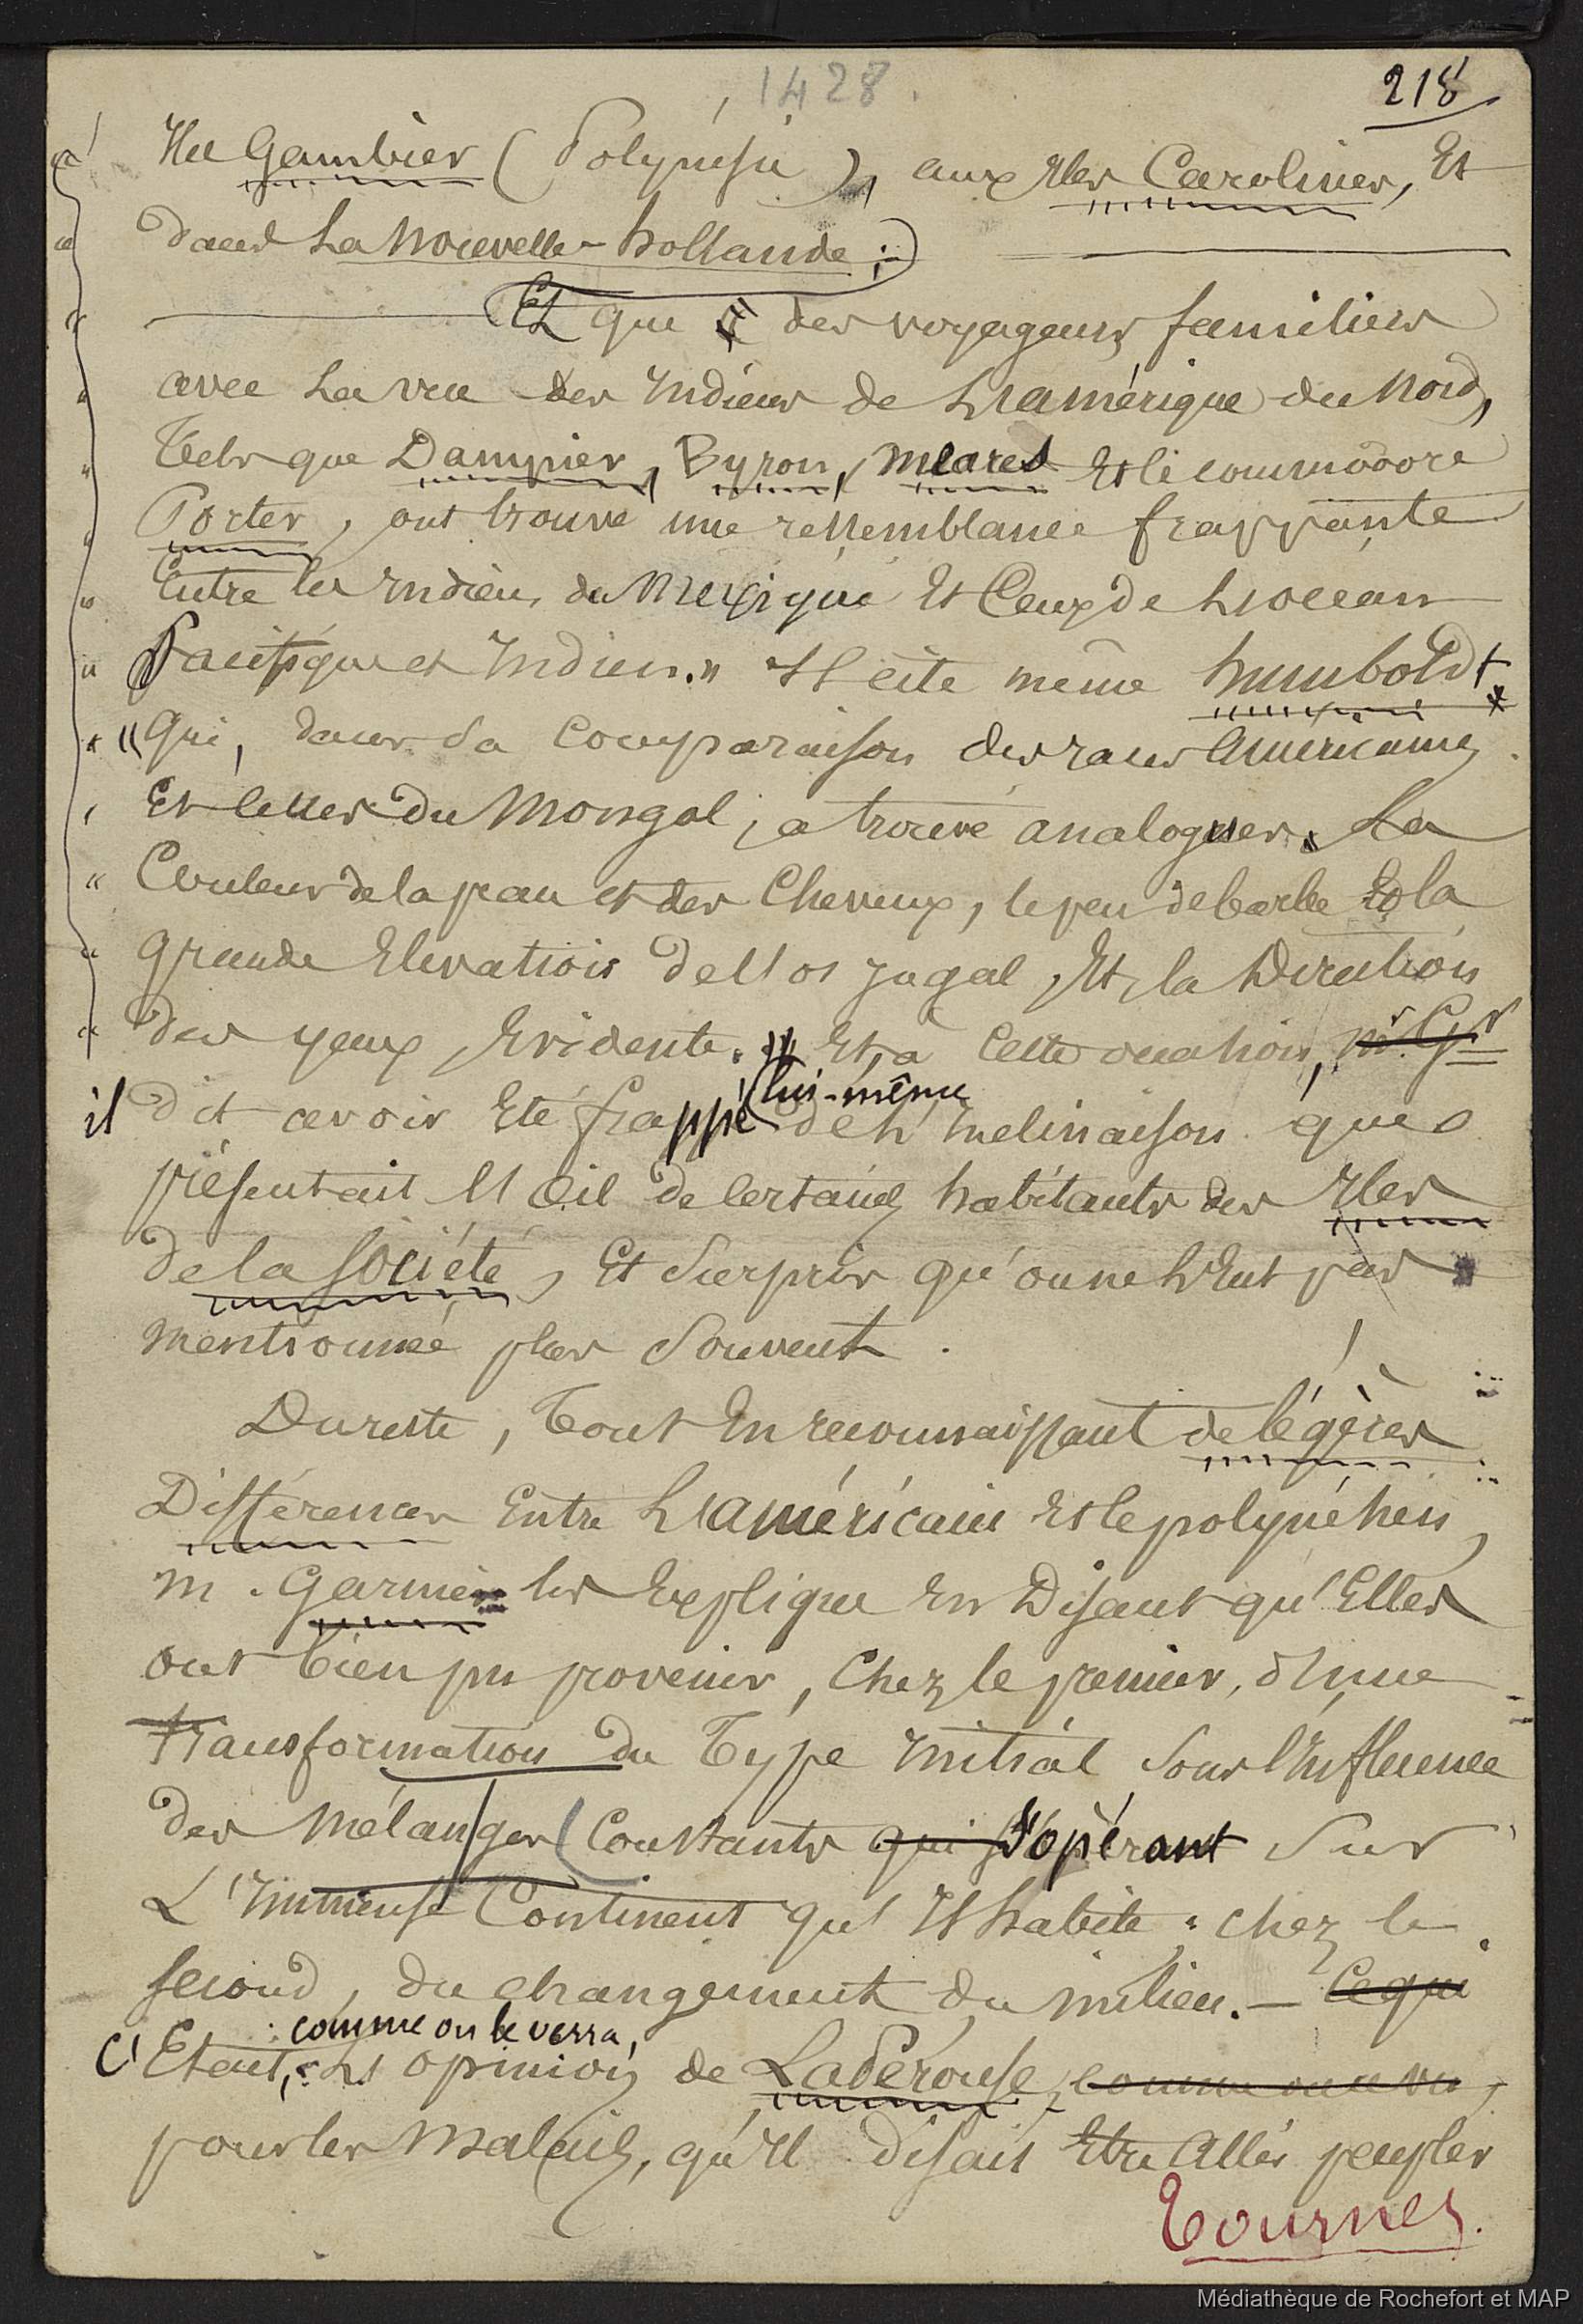 1428.
218
" Iles Gambier (Polynésie), aux Iles Carolines, Et
" dans La Nouvelle-hollande;
" Et que des voyageurs familiers
" avec La vue des Indiens de L'amérique du Nord,
" Tels que Dampier, Byron, Meares Et le commodore
" Porter, ont trouvé une ressemblance frappante
" Entre les Indiens du Mexique Et Ceux de L'océan
" Pacifique et Indien." Il cite même humboldt *
" "qui, dans sa comparaison des races américaines
" Et celles du Mongol, a trouvé analogues. La
" Couleur de la peau et des Cheveux, le peu de barbe Et la
" grande Elevation de l'os jugal, Et, la Direction
" des yeux Evidente." Et, à Cette occasion, mr Gr
il dit avoir Eté frappé lui-même de L'inclinaison que
présentait l'oeil de Certains habitants des Iles
de la Société, Et Surpris qu'on ne L'Eut pas
mentionnée plus Souvent.
Dureste, Tout En reconnaissant de légères
Différences Entre L'américain Et le polynésien,
m. Garnier les Explique En Disant qu'Elles
ont bien pu provenir, Chez le premier, d'une
transformation du Type initial Sous l'Influence
des Mélanges Constants qui s'opérant Sur
L'immense Continent qu'Il habite; chez le
second, du changement du milieu. — Ce qui
comme on le verra,
C'Etait, L'opinion de LaPérouse, comme on a vu,
pour les Malais, qu'Il disait Etre Allés peupler
Tournez.
Médiathèque de Rochefort et MAP